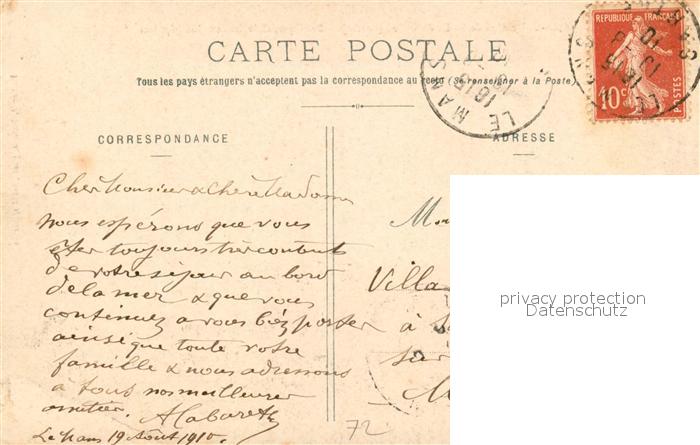 CARTE POSTALE
Tous les pays étrangers n'acceptent pas la correspondance au recto (Se renseigner à la Poste)
REPUBLIQUE FRANÇAISE
10c POSTES
LE MANS
16 15
CORRESPONDANCE
ADRESSE
Cher Monsieur & Chère Madame
nous espérons que vous
êtes toujours très contents
de votre séjour au bord
de la mer & que vous
continuez a vous bien porter
ainsi que toute votre
famille & nous adressons
à tous nos meilleures
amitiés.
Le Mans 19 Août 1910.
Villa
à
sur
72
privacy protection
Datenschutz